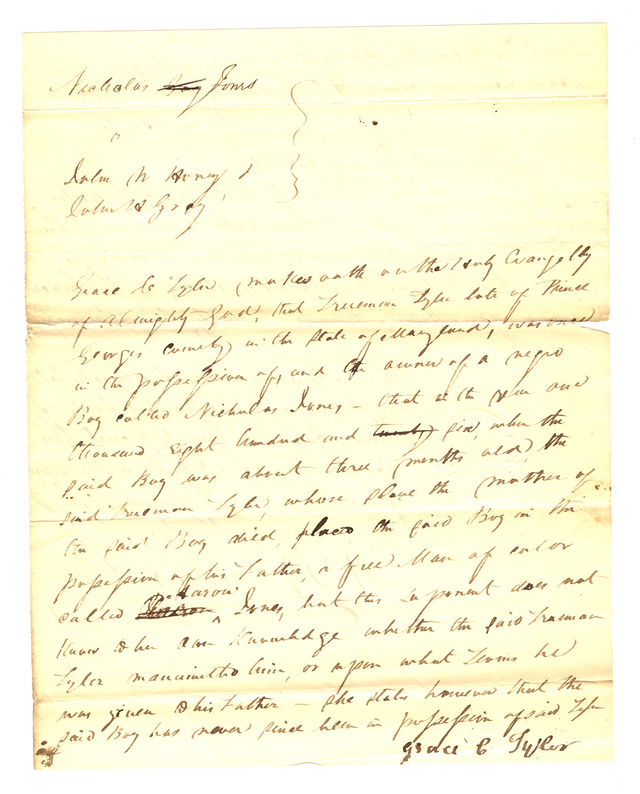 Nicholas Gray Jones
"
John W Honey &
John H Gray
Grace C Tyler makes oath on the Holy Evangelly
of Almighty God, that Trueman Tyler late of Prince
Georges County in the State of Maryland, was once
in the possession of, and the owner of a negro
Boy called Nicholas Jones - that in the year one
thousand eight hundred and twenty six, when the
said Boy was about three months old, the
said Trueman Tyler, whose slave the mother of
the said Boy died, placed the said Boy in the
possession of his Father, a free Man of color
called Aaron Jones, but this deponent does not
know to her own Knowledge whether the said Trueman
Tyler manumitted him, or upon what Terms he
was given to his Father - she states however that the
said Boy has never since been in possession of said Tyler
Grace C Tyler